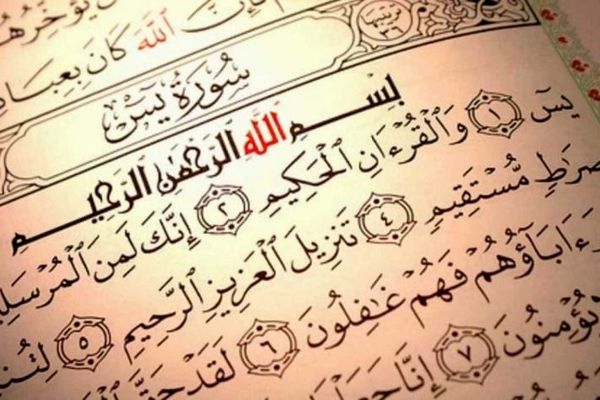 يُؤَخِّرُهُ
فَإِنَّ ٱللَّهَ كَانَ بِعِبَادِ
سُورَةُ يسٓ
بِسْمِ ٱللَّهِ ٱلرَّحْمَٰنِ ٱلرَّحِيمِ
يسٓ ١ وَٱلْقُرْءَانِ ٱلْحَكِيمِ ٢ إِنَّكَ لَمِنَ ٱلْمُرْسَلِي
صِرَٰطٍ مُّسْتَقِيمٍ ٤ تَنزِيلَ ٱلْعَزِيزِ ٱلرَّحِيمِ ٥ لِتُن
ءَابَآؤُهُمْ فَهُمْ غَٰفِلُونَ ٦ لَقَدْ حَقَّ
يُؤْمِنُونَ ٧ إِنَّا جَعَلْنَا